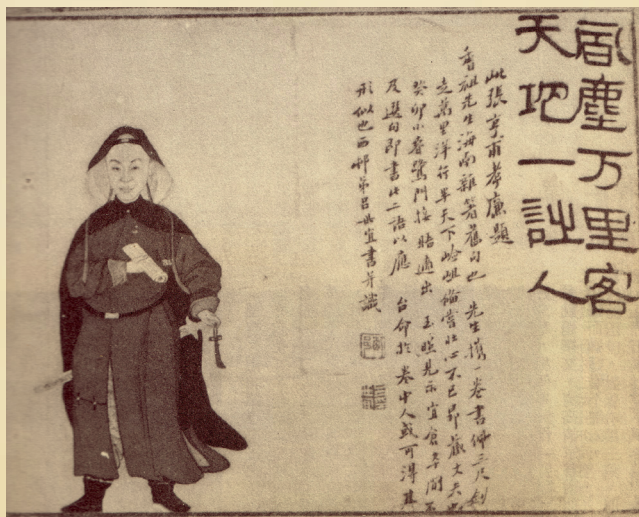 風塵万里客
天地一詩人
此張亨甫孝廉題
香祖先生海南雜著舊句也 先生携一卷書佩三尺劍
走萬里洋行半天下嶮岨備嘗壯心不已昂藏丈夫也
癸卯小春鷺門接晤適出 玉照見示宜倉卒間不
及選句即書此二語以應 台命於卷中人或可得其
形似也西邨弟呂世宜書并識